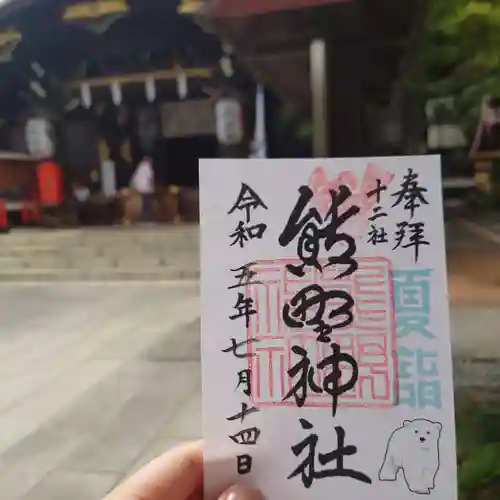 奉拝
夏詣
十二社
熊野神社
令和五年七月十四日